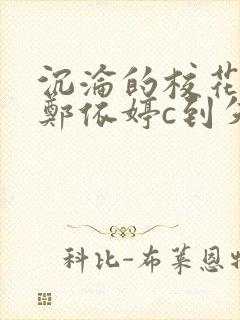 沉沦的校花
鄭依婷c到
科比-布莱恩特